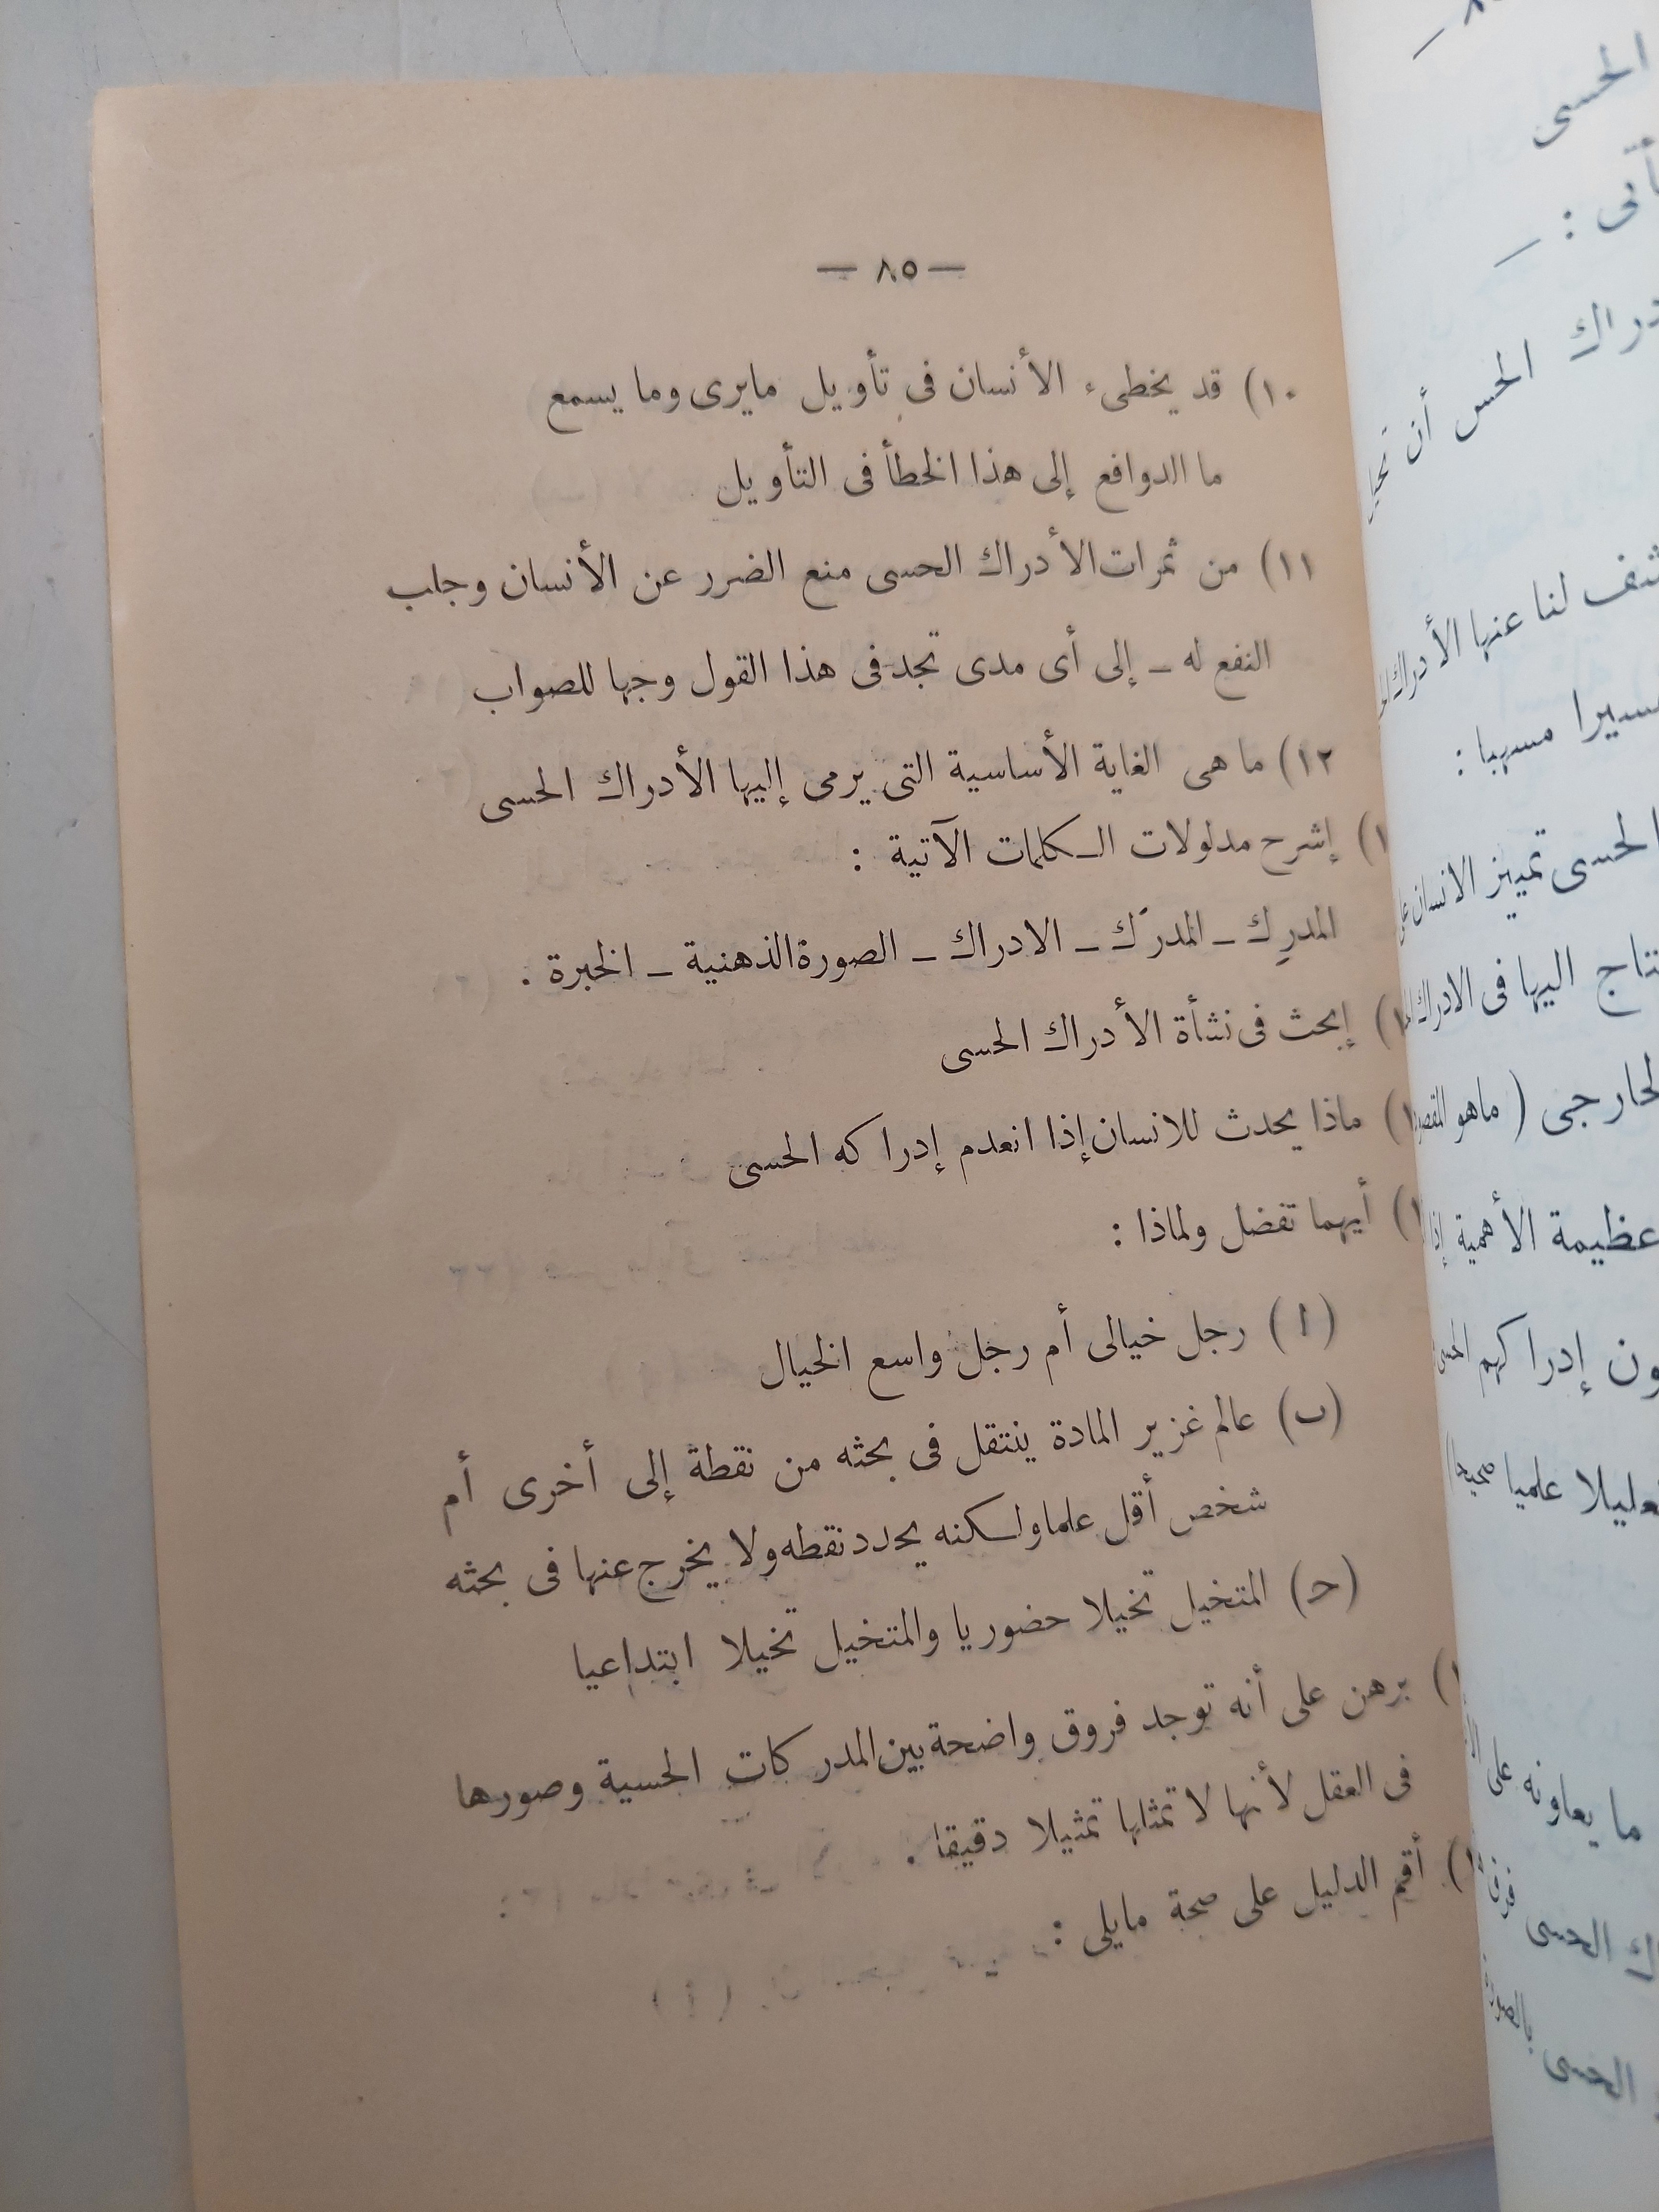 — ٨٥ —
١٠) قد يخطىء الأنسان فى تأويل مايرى وما يسمع
ما الدوافع إلى هذا الخطأ فى التأويل
١١) من ثمرات الأدراك الحسى منع الضرر عن الأنسان وجلب
النفع له ـ إلى أى مدى تجد فى هذا القول وجها للصواب
١٢) ما هى الغاية الأساسية التى يرمى إليها الأدراك الحسى
١) إشرح مدلولات الكلمات الآتية :
المدرِك ـ المدرَك ـ الادراك ـ الصورة الذهنية ـ الخبرة .
١) إبحث فى نشأة الأدراك الحسى
١) ماذا يحدث للانسان إذا انعدم إدراكه الحسى
١) أيهما تفضل ولماذا :
(ا) رجل خيالى أم رجل واسع الخيال
(ب) عالم غزير المادة ينتقل فى بحثه من نقطة إلى أخرى أم
شخص أقل علما ولكنه يحدد نقطه ولا يخرج عنها فى بحثه
(ح) المتخيل تخيلا حضوريا والمتخيل تخيلا ابتداعيا
١) برهن على أنه توجد فروق واضحة بين المدركات الحسية وصورها
فى العقل لأنها لا تمثلها تمثيلا دقيقا .
١) أقم الدليل على صحة مايلى :
الحسى
دراك الحس أن
لنا عنها الأدراك
مسهبا :
الحسى تمييز الانسان
اليها فى الادراك
( ماهو
عظيمة الأهمية إذا
إدراكهم
علميا صحيحا
ما يعاونه على
الحسى
الحسى